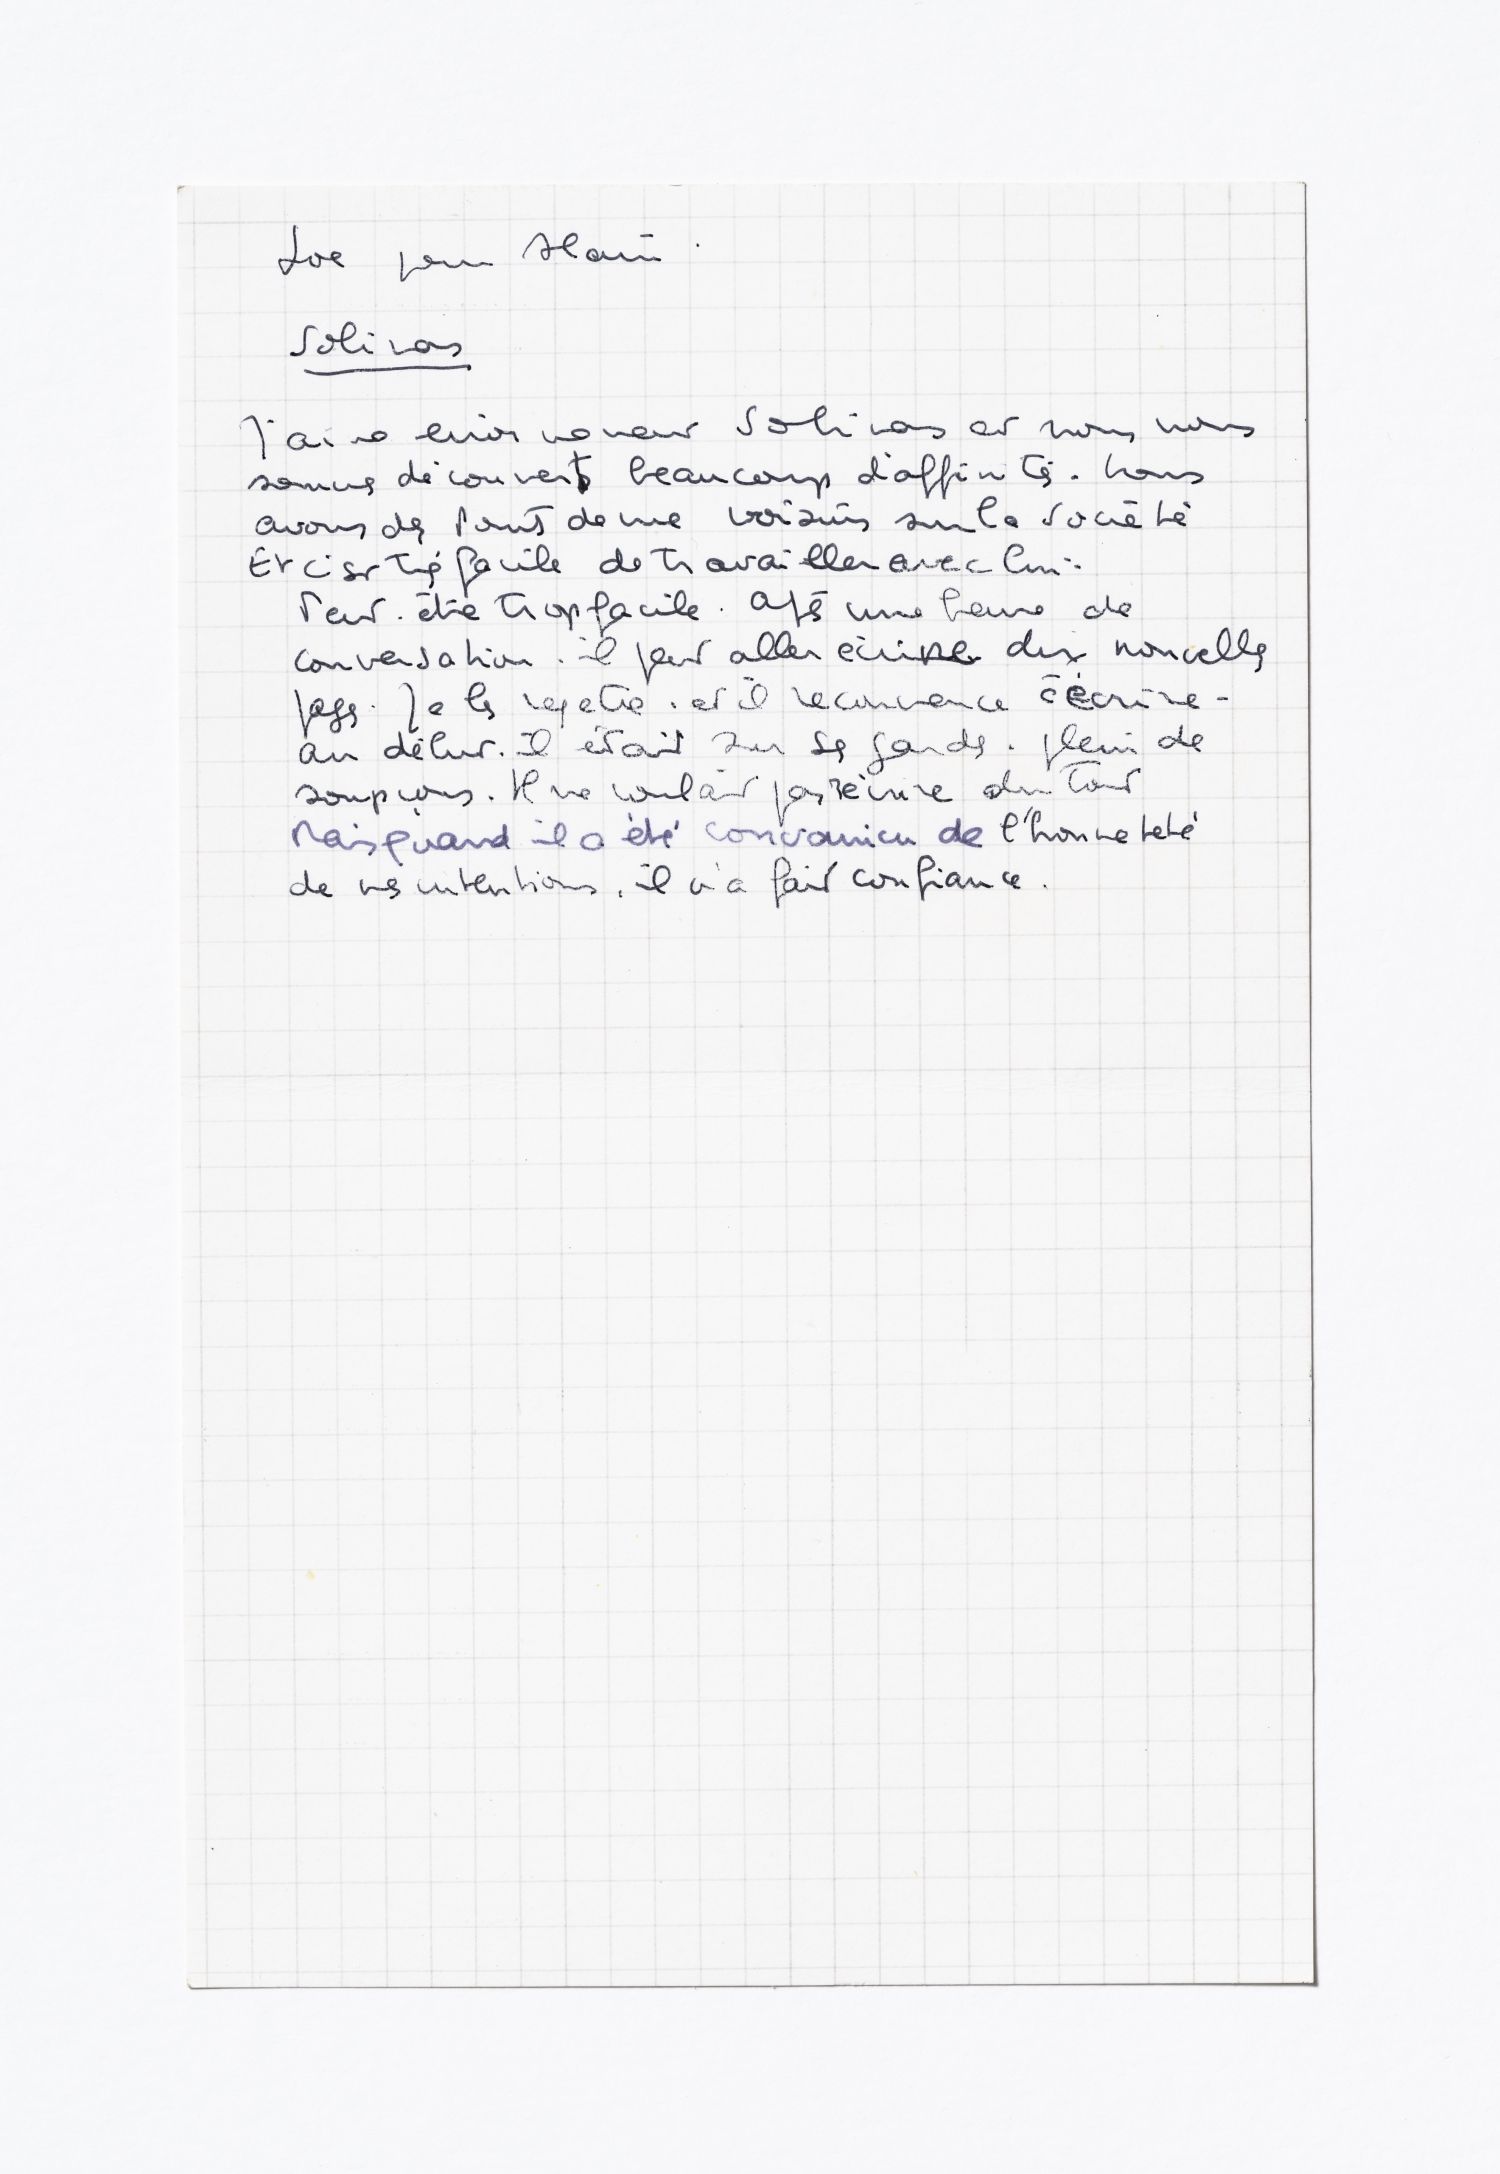 Joe pour Alain
Solinas
J'aime énormément Solinas et nous nous
sommes découverts beaucoup d'affinités. Nous
avons des points de vue voisins sur la société
Et c'est très facile de travailler avec lui.
Peut-être trop facile. Après une heure de
conversation, il peut aller écrire dix nouvelles
pages. Je les rejette, et il recommence à écrire -
au début, il était sur ses gardes, plein de
soupçons. Il ne voulait pas réécrire du tout
Mais quand il a été convaincu de l'honneteté
de mes intentions, il m'a fait confiance.